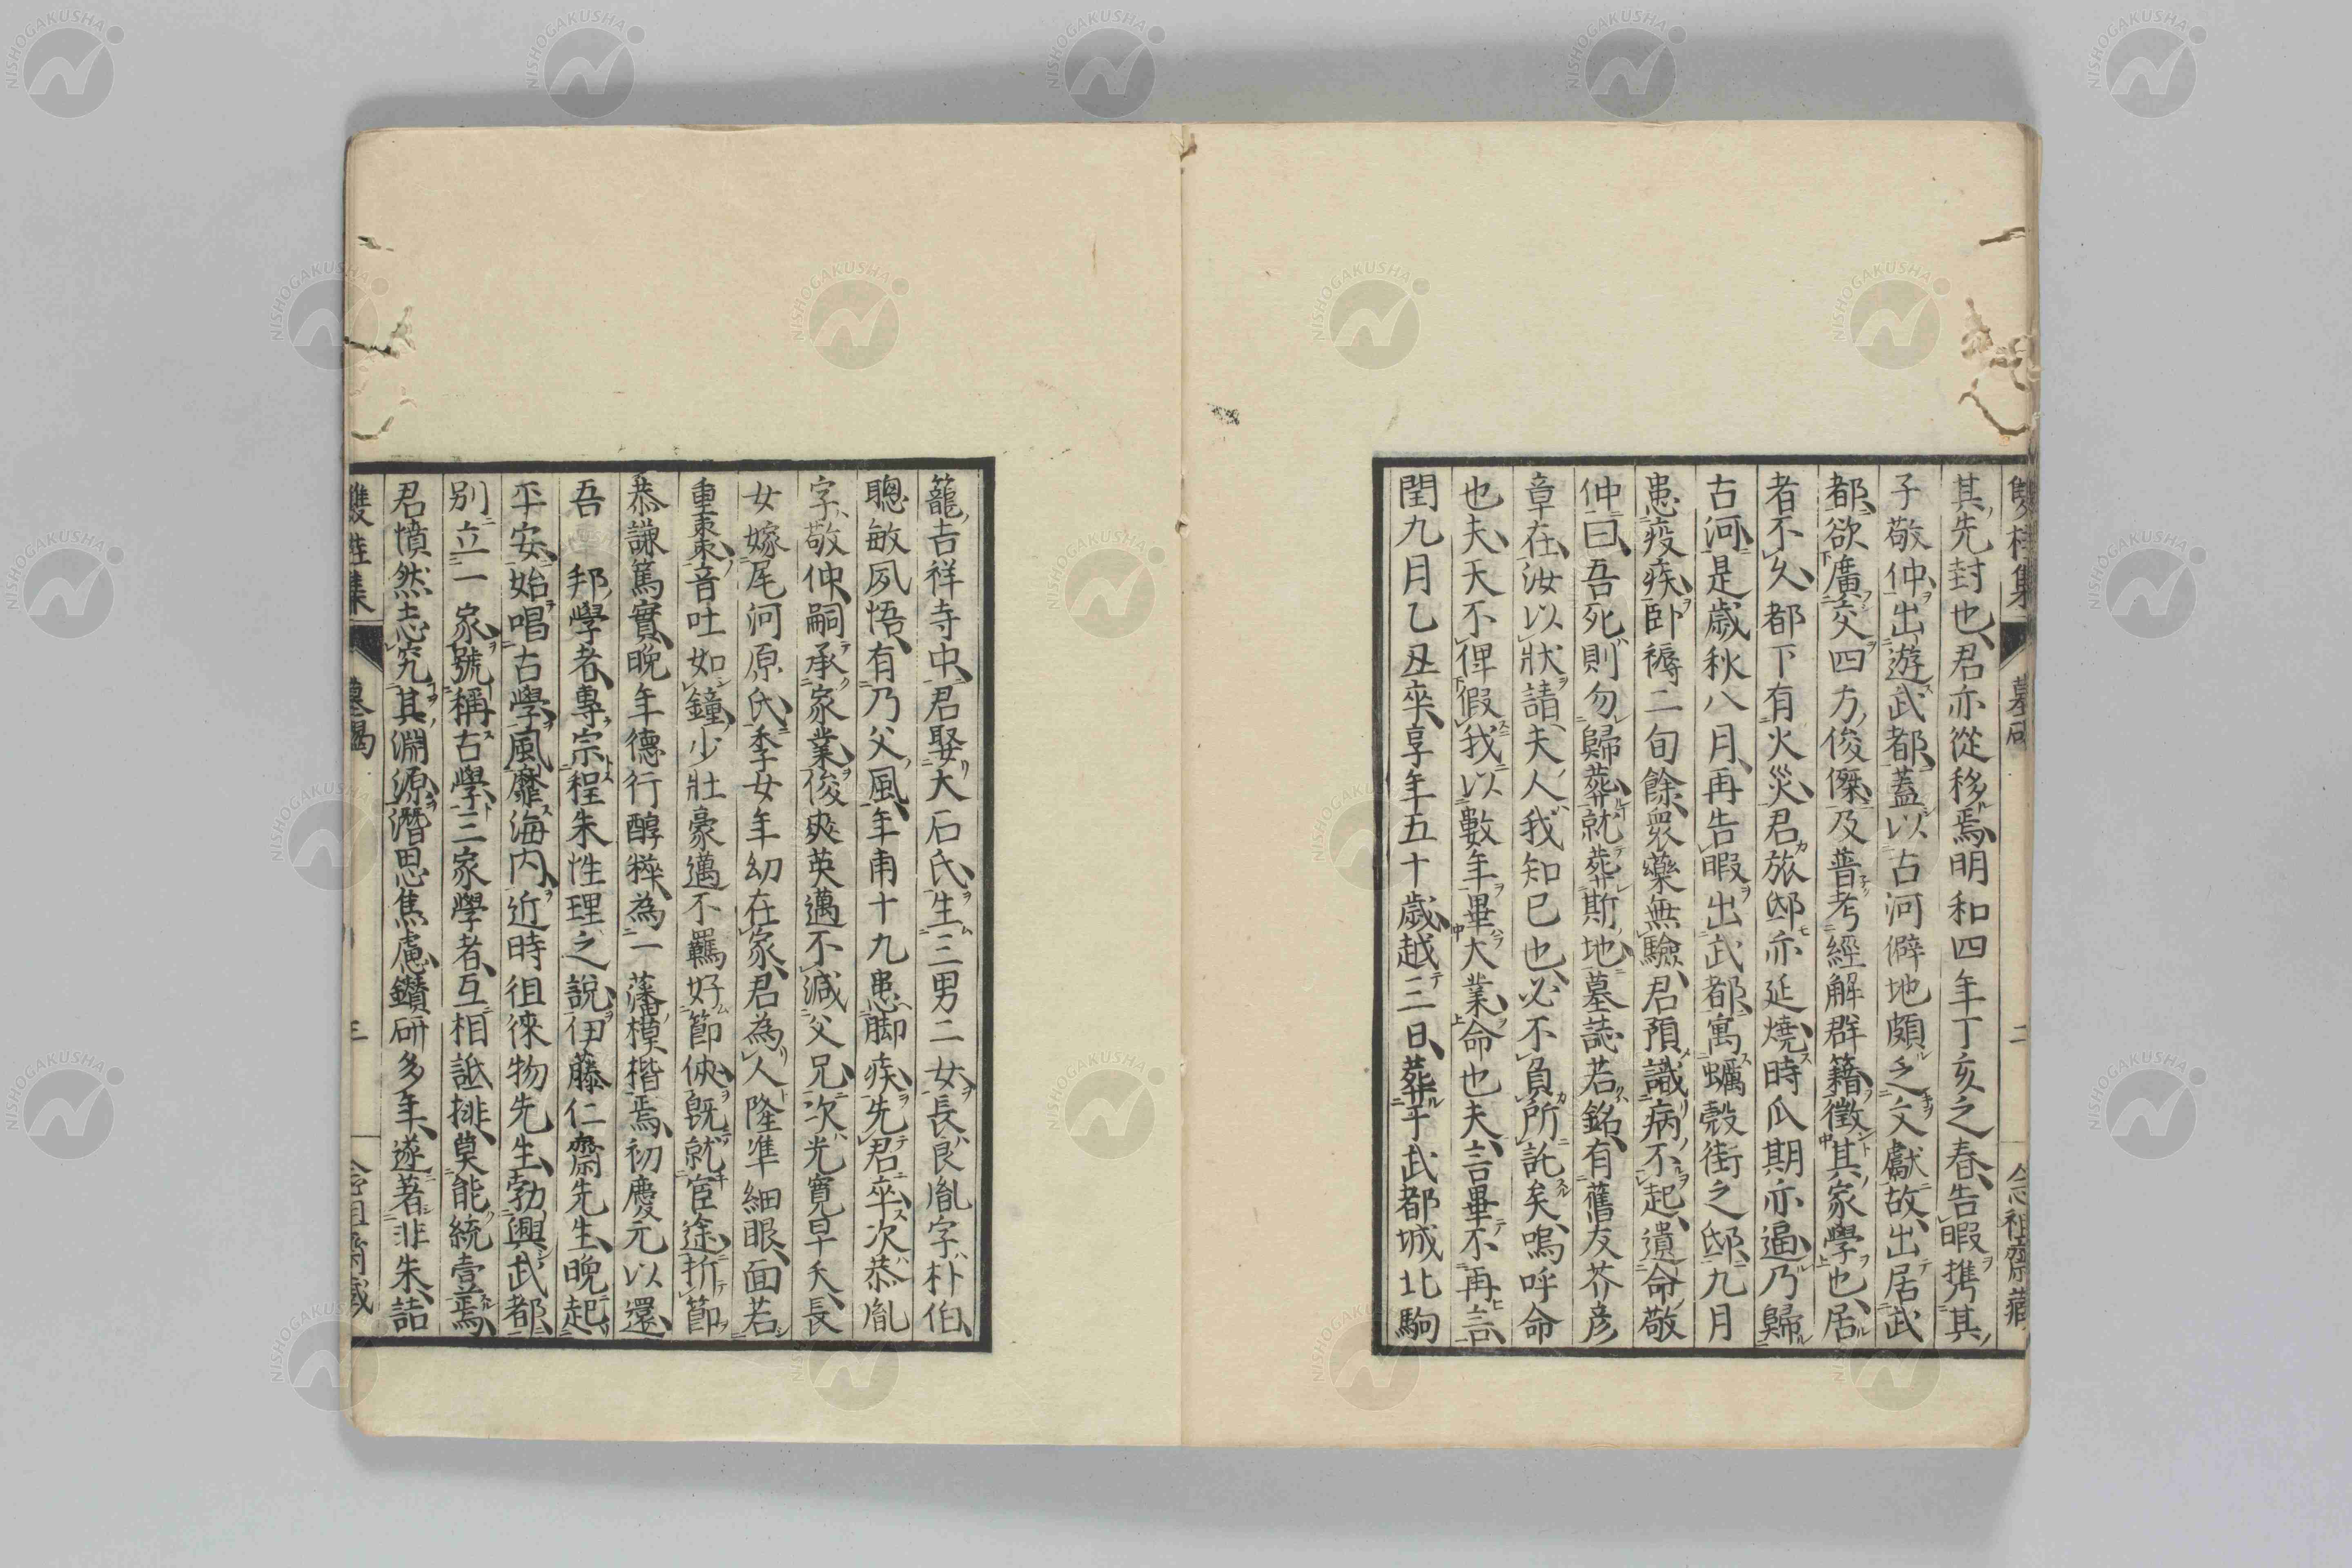 雙桂集 墓碣 二 念祖齋藏
其先封也君亦從移焉明和四年丁亥之春告暇携其
子敬仲出遊武都蓋以古河僻地頗之文獻故出居武
都欲廣交四方俊傑及普考經解群籍徵其家學也居
者不久都下有火災君旅邸亦延燒時瓜期亦逼乃歸
古河是歲秋八月再告暇出武都寓蠣殼街之邸九月
患疫疾卧褥二旬餘衆藥無驗君預識病不起遺命敬
仲曰吾死則勿歸葬就葬斯地墓誌若銘有舊友芥彦
章在汝以狀請夫人我知已也必不負所託矣嗚呼命
也夫天不俾假我以數年畢大業命也夫言畢不再言
閏九月乙丑卒享年五十歲越三日葬于武都城北駒
籠吉祥寺中君娶大石氏生三男二女長良胤字朴伯
聰敏夙悟有乃父風年甫十九患脚疾先君卒次恭胤
字敬仲嗣承家業俊爽英邁不減父兄次光寬早夭長
女嫁尾河原氏季女年幼在家君為人隆準細眼面若
重棗音吐如鐘少壯豪邁不羈好節俠既就宦途折節
恭謙篤實晩年德行醇粹為一藩模楷焉初慶元以還
吾邦學者專宗程朱性理之說伊藤仁齋先生晩起
平安始唱古學風靡海内近時徂徠物先生勃興武都
別立一家號稱古學三家學者互相詆排莫能統壹焉
君憤然志究其淵源潛思焦慮鑽研多年遂著非朱詰
雙桂集 墓碣 三 念祖齋藏
NISHOGAKUSHA